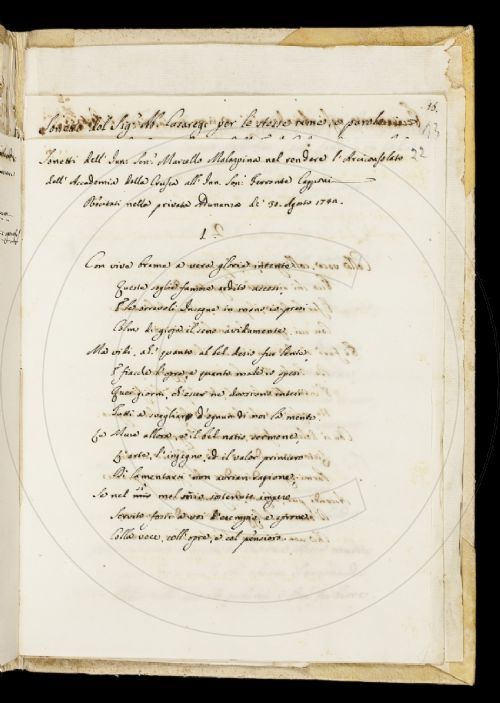 16.
Sonetto del Sig.r Ab. Casaregi per le stesse rime, e parole
13
22
Sonetti dell' Inn. Sen.r Marcello Malaspina nel rendere l' Arciconsolato
dell' Accademia della Crusca all' Inn. Sen.r Ferrante Capponi
Recitati nella privata Adunanza de' 30. Agosto 1740.
1.o
Con vive brame a vera gloria intente
Queste soglie famose ardito ascesi
E le orrevoli Insegne in mano io presi
Colmo di gioja il seno avidamente.
Ma vidi, ah! quanto al bel desio fur lente,
E fiacche l'opre, e quanto male io spesi
Quei giorni, ch' esser ne dovriano intesi
Tutti a svegliar d'ognun di noi la mente.
La Musa allora, e il bel natio sermone,
L'arte, l'ingegno, ed il valor primiero
Di lamentarsi non avrian cagione,
Se nel mio mal sostenuto impero
Servito fossi a voi d'esempio, e sprone
Colla voce, coll' opre, e col pensiero.